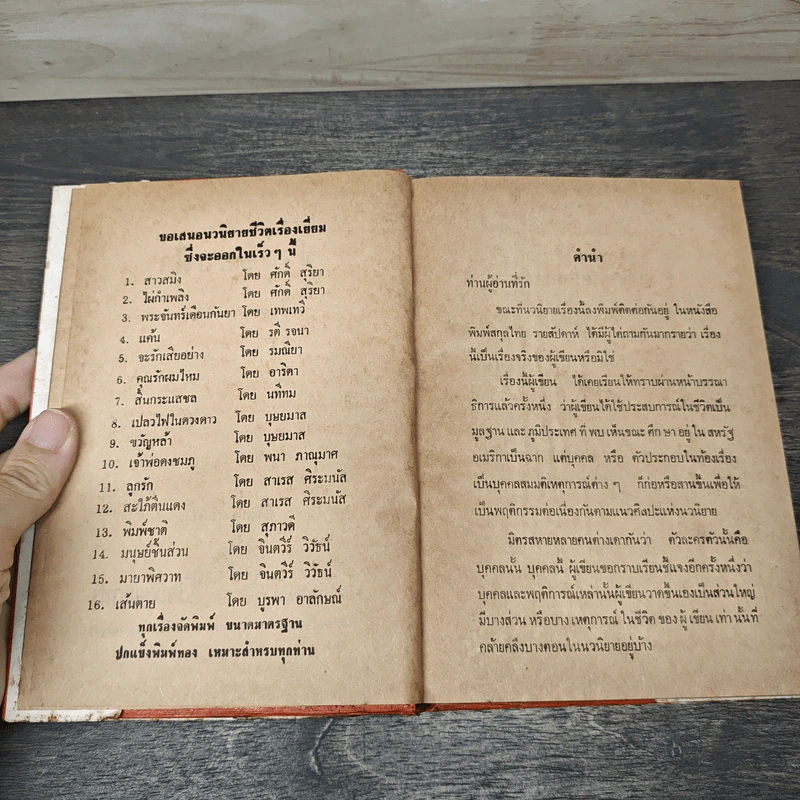 ขอเสนอนวนิยายชีวิตเรื่องเยี่ยม
ซึ่งจะออกในเร็ว ๆ นี้
1. สาวสมิง โดย ศักดิ์ สุริยา
2. ไผ่กำเพลิง โดย ศักดิ์ สุริยา
3. พระจันทร์เดือนกันยา โดย เทพเทวี
4. แค้น โดย รตี รจนา
5. จะรักเสียอย่าง โดย รมณียา
6. คุณรักผมไหม โดย อาริตา
7. สิ้นกระแสชล โดย นทีทม
8. เปลวไฟในดวงดาว โดย บุษยมาส
9. ขวัญหล้า โดย บุษยมาส
10. เจ้าพ่อดงชมภู โดย พนา ภาณุมาศ
11. ลูกรัก โดย สาเรส ศิระมนัส
12. สะใภ้ดินแดง โดย สาเรส ศิระมนัส
13. พิมพ์ชาติ โดย สุภาวดี
14. มนุษย์ชิ้นส่วน โดย จินตวีร์ วิวัธน์
15. มายาพิศวาท โดย จินตวีร์ วิวัธน์
16. เส้นตาย โดย บูรพา อาลักษณ์
ทุกเรื่องจัดพิมพ์ ขนาดมาตรฐาน
ปกแข็งพิมพ์ทอง เหมาะสำหรับทุกท่าน
คำนำ
ท่านผู้อ่านที่รัก
ขณะที่นวนิยายเรื่องนี้ลงพิมพ์ติดต่อกันอยู่ ในหนังสือ
พิมพ์สกุลไทย รายสัปดาห์ ได้มีผู้ไต่ถามกันมากรายว่า เรื่อง
นี้เป็นเรื่องจริงของผู้เขียนหรือมิใช่
เรื่องนี้ผู้เขียน ได้เคยเรียนให้ทราบผ่านหน้าบรรณา
ธิการแล้วครั้งหนึ่ง ว่าผู้เขียนได้ใช้ประสบการณ์ในชีวิตเป็น
มูลฐาน และ ภูมิประเทศ ที่ พบ เห็นขณะ ศึก ษา อยู่ ใน สหรัฐ
อเมริกาเป็นฉาก แต่บุคคล หรือ ตัวประกอบในท้องเรื่อง
เป็นบุคคลสมมติเหตุการณ์ต่าง ๆ ก็ก่อหรือสานขึ้นเพื่อให้
เป็นพฤติกรรมต่อเนื่องกันตามแนวศิลปะแห่งนวนิยาย
มิตรสหายหลายคนต่างเดากันว่า ตัวละครตัวนั้นคือ
บุคคลนั้น บุคคลนี้ ผู้เขียนขอกราบเรียนชี้แจงอีกครั้งหนึ่งว่า
บุคคลและพฤติการณ์เหล่านั้นผู้เขียนวาดขึ้นเองเป็นส่วนใหญ่
มีบางส่วน หรือบาง เหตุการณ์ ในชีวิต ของ ผู้ เขียน เท่า นั้นที่
คล้ายคลึงบางตอนในนวนิยายอยู่บ้าง